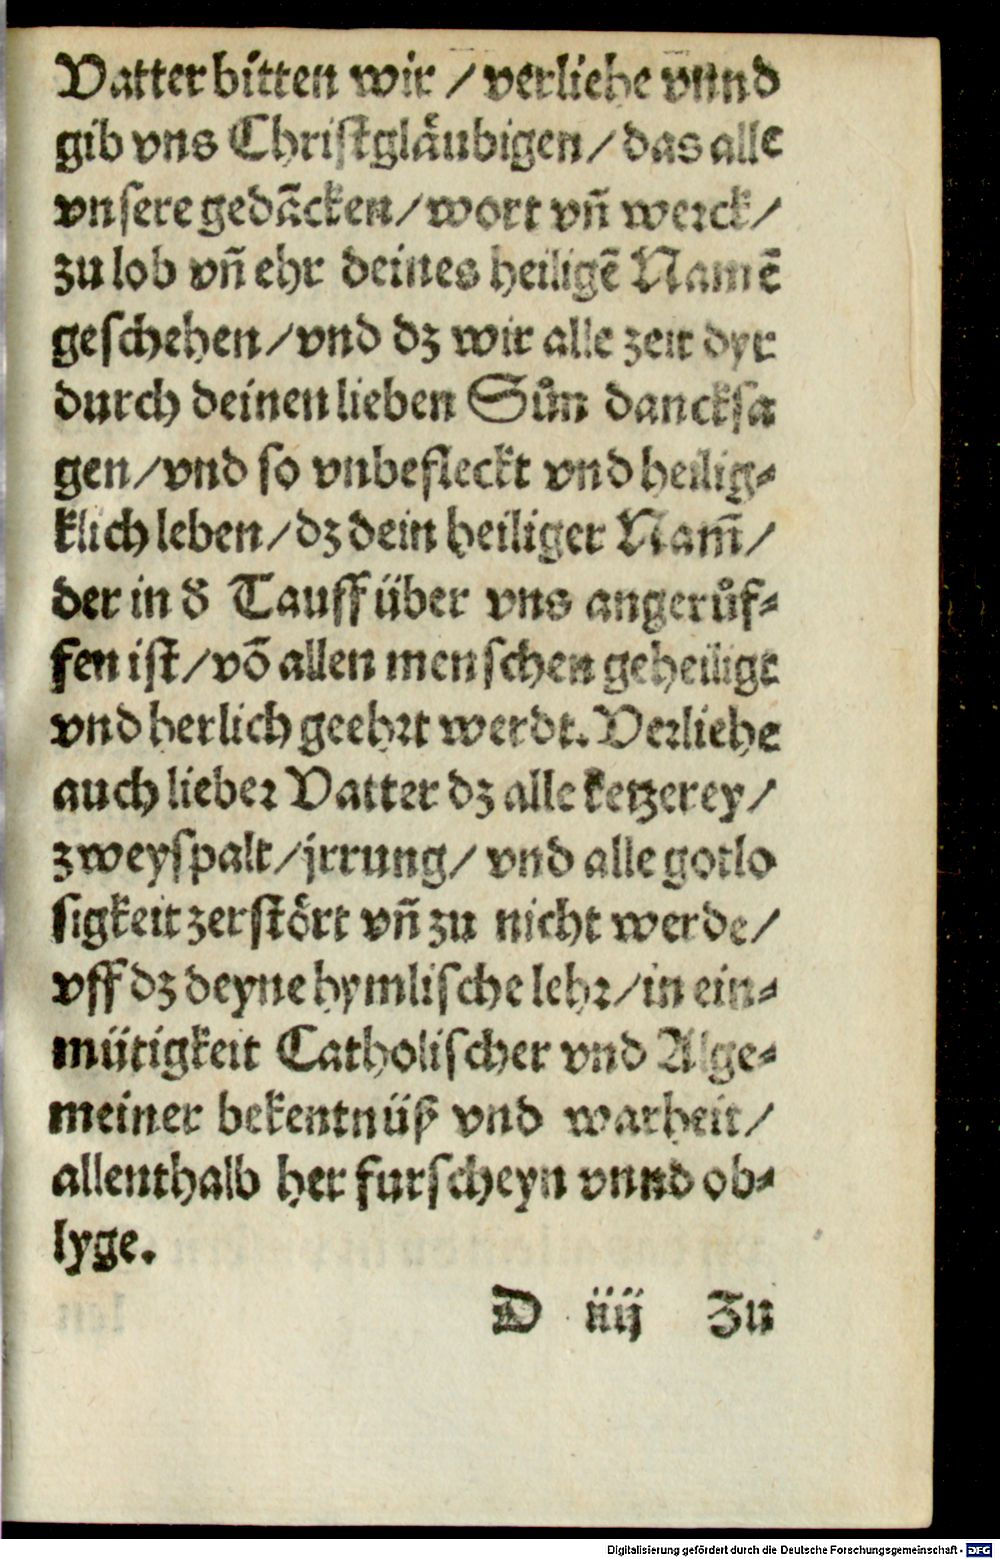 Vatter bitten wir / verliehe vnnd
gib vns Christgläubigen / das alle
vnsere gedãcken / wort vñ werck /
zu lob vñ ehr deines heiligẽ Namẽ
geschehen / vnd dz wir alle zeit dyr
durch deinen lieben Sůn dancksa
gen / vnd so vnbefleckt vnd heilig-
klich leben / dz dein heiliger Nam̃ /
der in d̕ Tauff über vns angerůf-
fen ist / võ allen menschen geheiligt
vnd herlich geehrt werdt. Verliehe
auch lieber Vatter dz alle ketzerey /
zweyspalt / jrrung / vnd alle gotlo
sigkeit zerstört vñ zu nicht werde /
vff dz deyne hymlische lehr / in ein-
mütigkeit Catholischer vnd Alge-
meiner bekentnüß vnd warheit /
allenthalb her furscheyn vnnd ob-
lyge.
D iiij Zu
Digitalisierung gefördert durch die Deutsche Forschungsgemeinschaft - DFG